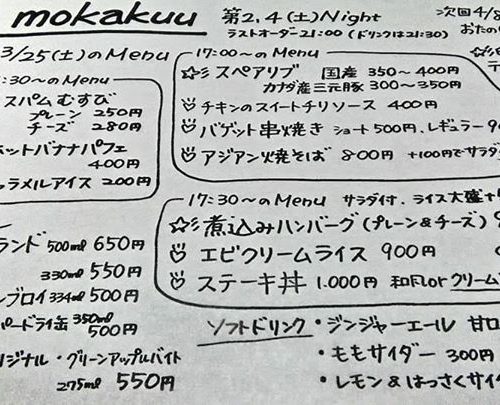 mokakuu 第2,4(土)Night 次回4/8
ラストオーダー21:00(ドリンクは21:30) おたの
3/25(土)のMenu
:30〜のMenu
スパムむすび
プレーン 250円
チーズ 280円
ホットバナナパフェ
400円
ャラメルアイス 200円
17:00〜のMenu
☆スペアリブ 国産 350〜400円
カナダ産三元豚 300〜350円
チキンのスイートチリソース 400円
バゲット串焼き ショート500円、レギュラー9
アジアン焼そば 800円 +100円でサラダ
17:30〜のMenu サラダ付、ライス大盛+
☆煮込みハンバーグ(プレーン&チーズ)
エビクリームライス 900円
ステーキ丼 1.000円 和風orクリーム
ランド 500ml 650円
330ml 550円
ルブロイ 334ml 500円
パードライ缶 350ml
500円
リジナル・グリーンアップルバイト
275ml 550円
ソフトドリンク・ジンジャーエール 甘口
・ももサイダー 300円
・レモン&はっさくサイダ